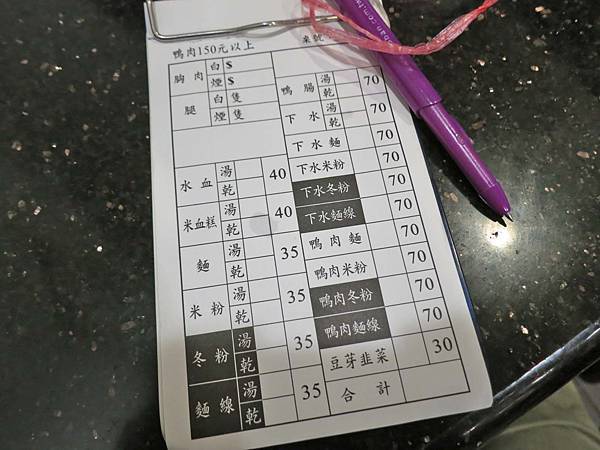 鴨肉150元以上 桌號
胸肉 白 $
煙 $
腿 白 隻
煙 隻
水血 湯 乾 40
米血糕 湯 乾 40
麵 湯 乾 35
米粉 湯 乾 35
冬粉 湯 乾 35
麵線 湯 乾 35
鴨腸 湯 乾 70
下水 湯 乾 70
下水麵 70
下水米粉 70
下水冬粉 70
下水麵線 70
鴨肉麵 70
鴨肉米粉 70
鴨肉冬粉 70
鴨肉麵線 70
豆芽韭菜 30
合計